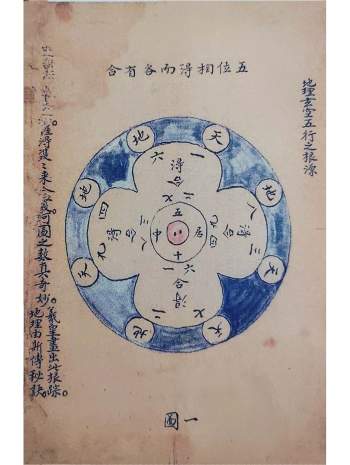 五位相得而各有合
地理玄空五行之根源
天
地
一
六
得
合
二
七
地
地
八
三
得
合
四
九
五
居
中
十
四
九
得
合
三
八
天
天
一
六
合
得
二
七
地
天
河圖之數真奇妙。
羲皇畫出此根踪。
地理由斯傳秘訣。
一圖